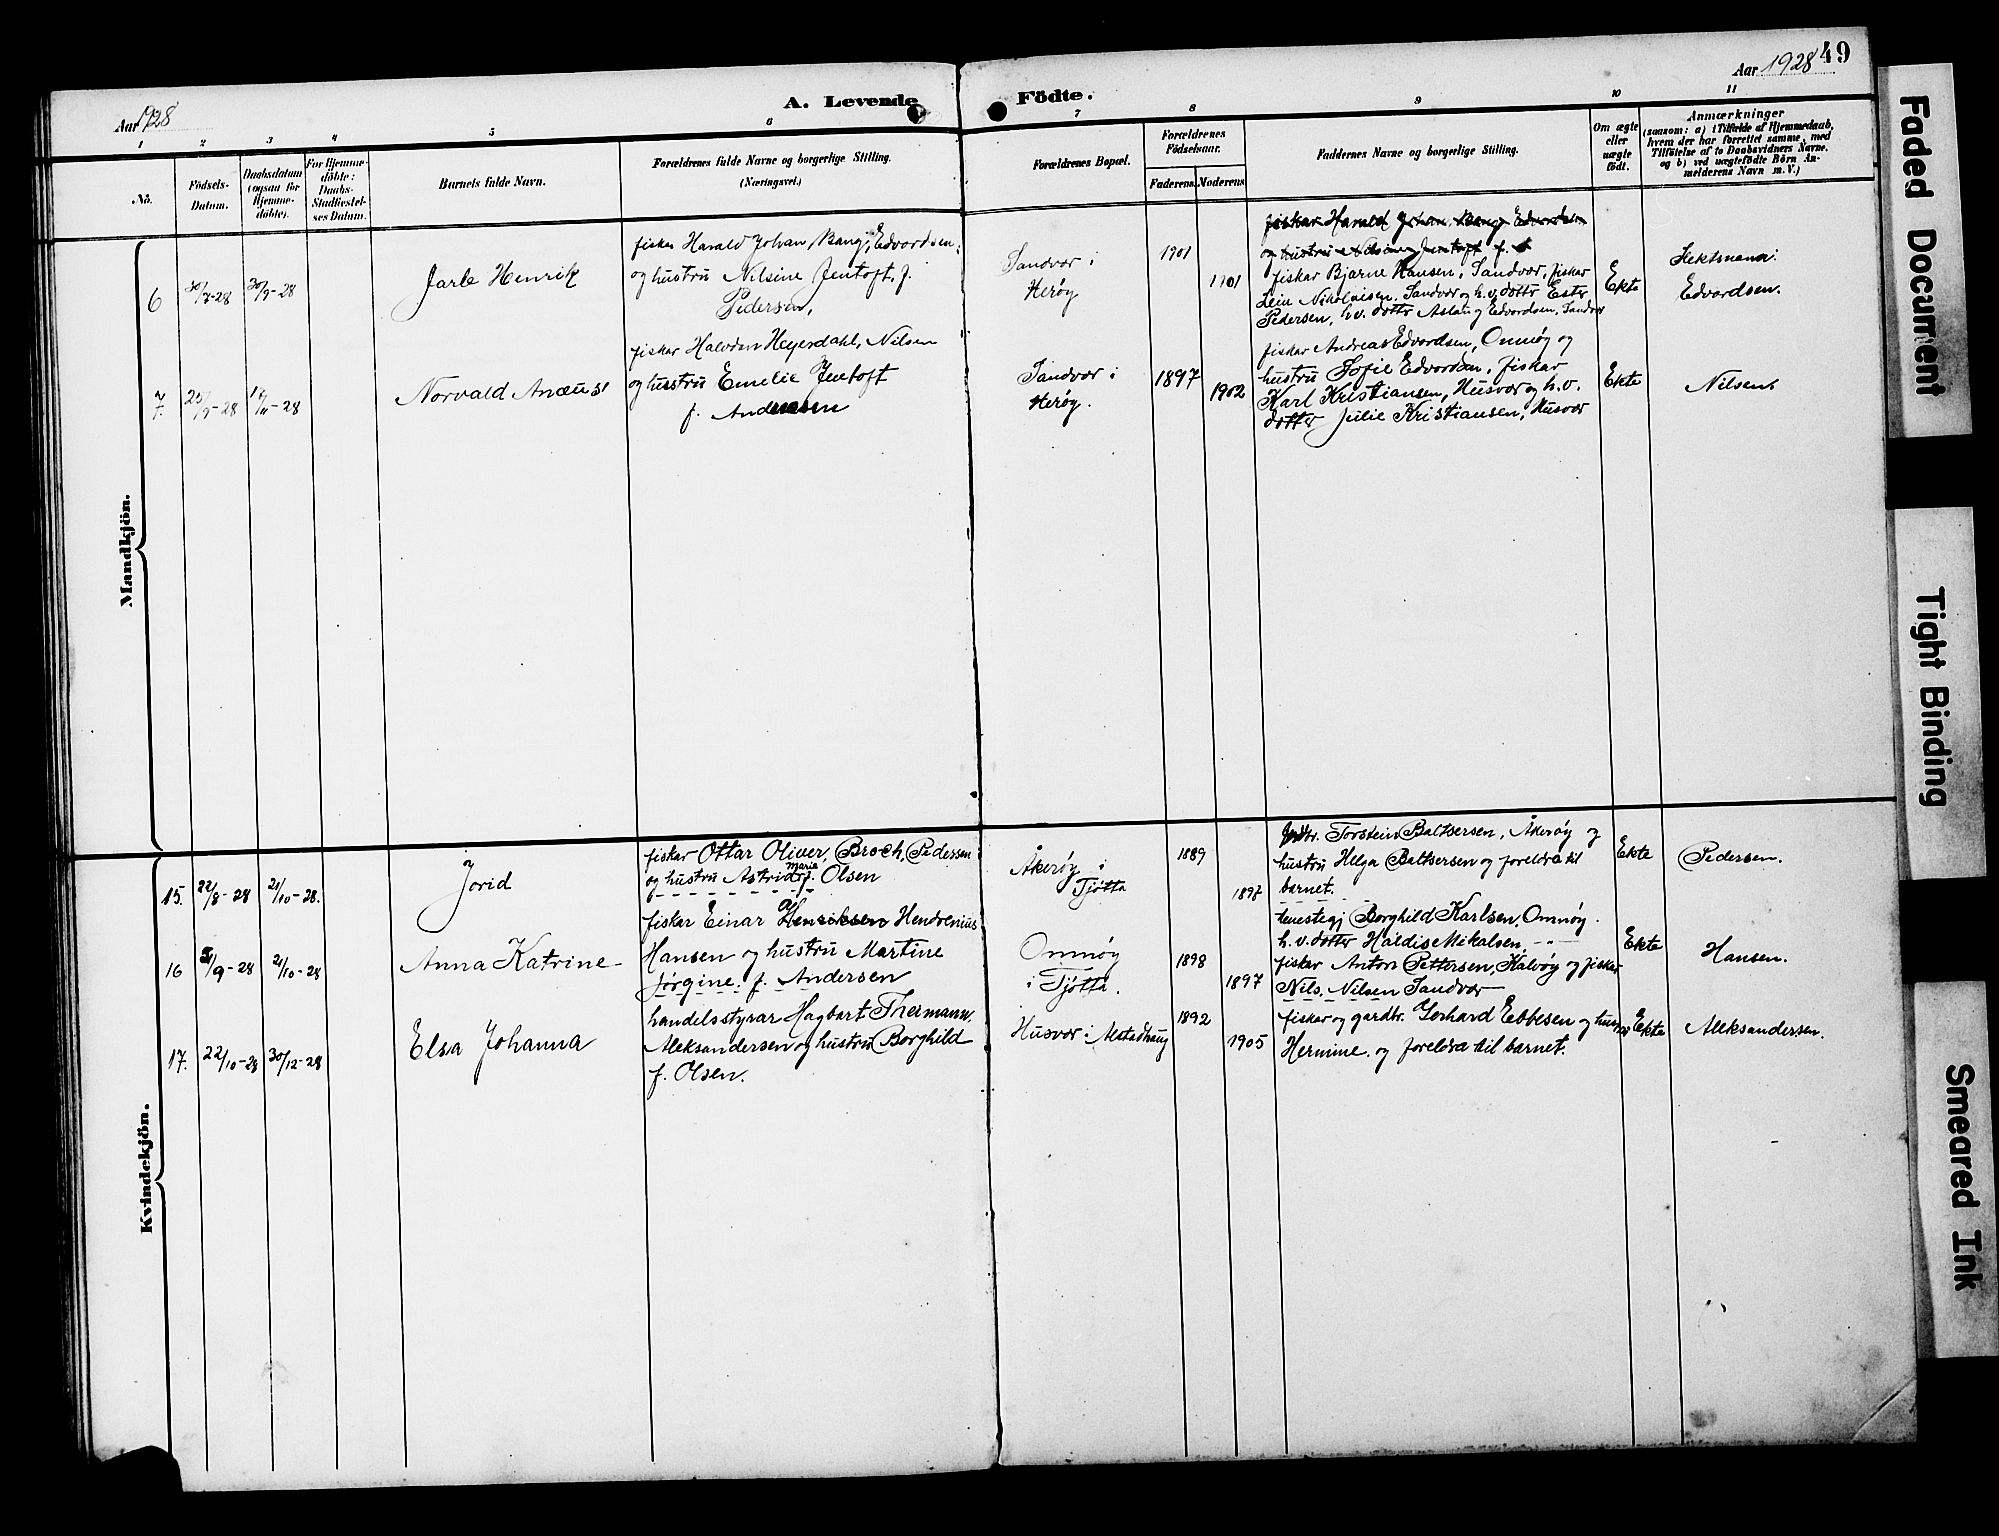 Aar 1928
A. Levende
Födte.
Aar 1928 49
1 2 3 4 5 6 7 8 9 10 11
No.
Födsels-
Datum.
Daabsdatum
(ogsaa for
Hjemme-
döbte).
For Hjemme-
döbte:
Daabs-
Stadfæstel-
ses Datum.
Barnets fulde Navn.
Forældrenes fulde Navne og borgerlige Stilling.
(Næringsvei.)
Forældrenes Bopæl.
Forældrenes
Födselsaar.
Faderens. Moderens
Faddernes Navne og borgerlige Stilling.
Om ægte
eller
uægte
födt.
Anmærkninger
(saasom: a) i Tilfælde af Hjemmedaab,
hvem der har forrettet samme, med
Tilföielse af to Daabsvidners Navne.
og b) ved uægtefödte Börn An-
melderens Navn m. V.)
Mandkjön.
6
30/7-28
30/9-28
Jarle Henrik
fisker Harald Johan, Bang, Edvardsen
og hustru Nilsine Jentoft, f.
Pedersen,
Sandvær i
Herøy
1901
1901
fiskar Harald Johan Bang Edvardsen
og hustru Nilsine Jentoft f.
fiskar Bjarne Hansen, Sandvær, fiskar
Leiv Nikolaisen. Sandvær og h.v. dotter Ester
Pedersen, h.v. dotter Aslaug Edvardsen, Sandvær
Ekte
Edvardsen.
7.
25/9-28
/11-28
Norvald Anæus
fiskar Halvdan Heyerdahl, Nilsen
og husstru Emelie Jentoft
f. Andersen
Sandvær i
Herøy.
1897
1902
fiskar Andreas Edvardsen, Omnøy og
hustru Sofie Edvardsen, fiskar
Karl Kristiansen, Husvær og h.v.
dotter Julie Kristiansen, Husvær
Ekte
Nilsen
Kvindekjön.
15.
22/8-28
21/10-28.
Jorid
fiskar Ottar Oliver, Broch, Pedersen
og hustru Astrid Marie f. Olsen
Åkerøy i
Tjøtta
1889
1897
Torstein Baltsersen, Åkerøy og
hustru Helga Baltsersen og foreldra til
barnet.
Ekte
Pedersen.
16
/9-28
21/10-28
Anna Katrine
fiskar Einar Henriksen Hendrenius
Hansen og hustru Martine
Jørgine. f. Andersen
Omnøy
i Tjøtta.
1898
1897
tenestegj Borghild Karlsen, Omnøy.
h.v. dotter Haldis Mikalsen, -"-
fiskar Anton Pettersen, Kalvøy og fiskar
Nils. Nilsen Sandvær
Ekte
Hansen.
17.
22/10-28
30/12-28
Elsa Johanna
handelsstyrar Hagbart Thermann.
Aleksandersen og hustru Borghild
f. Olsen.
Husvær i Alstadhaug
1892
1905
fiskar og gardbr. Gerhard Ebbesen og hustru
Hermine. og foreldra til barnet.
Ekte
Aleksandersen.
Faded Document
Tight Binding
Smeared Ink